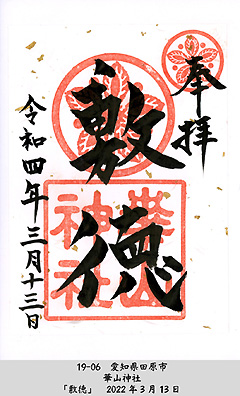 奉拝
敷德
華山神社
令和四年三月十三日
19-06 愛知県田原市
華山神社
「敷徳」 2022年3月13日